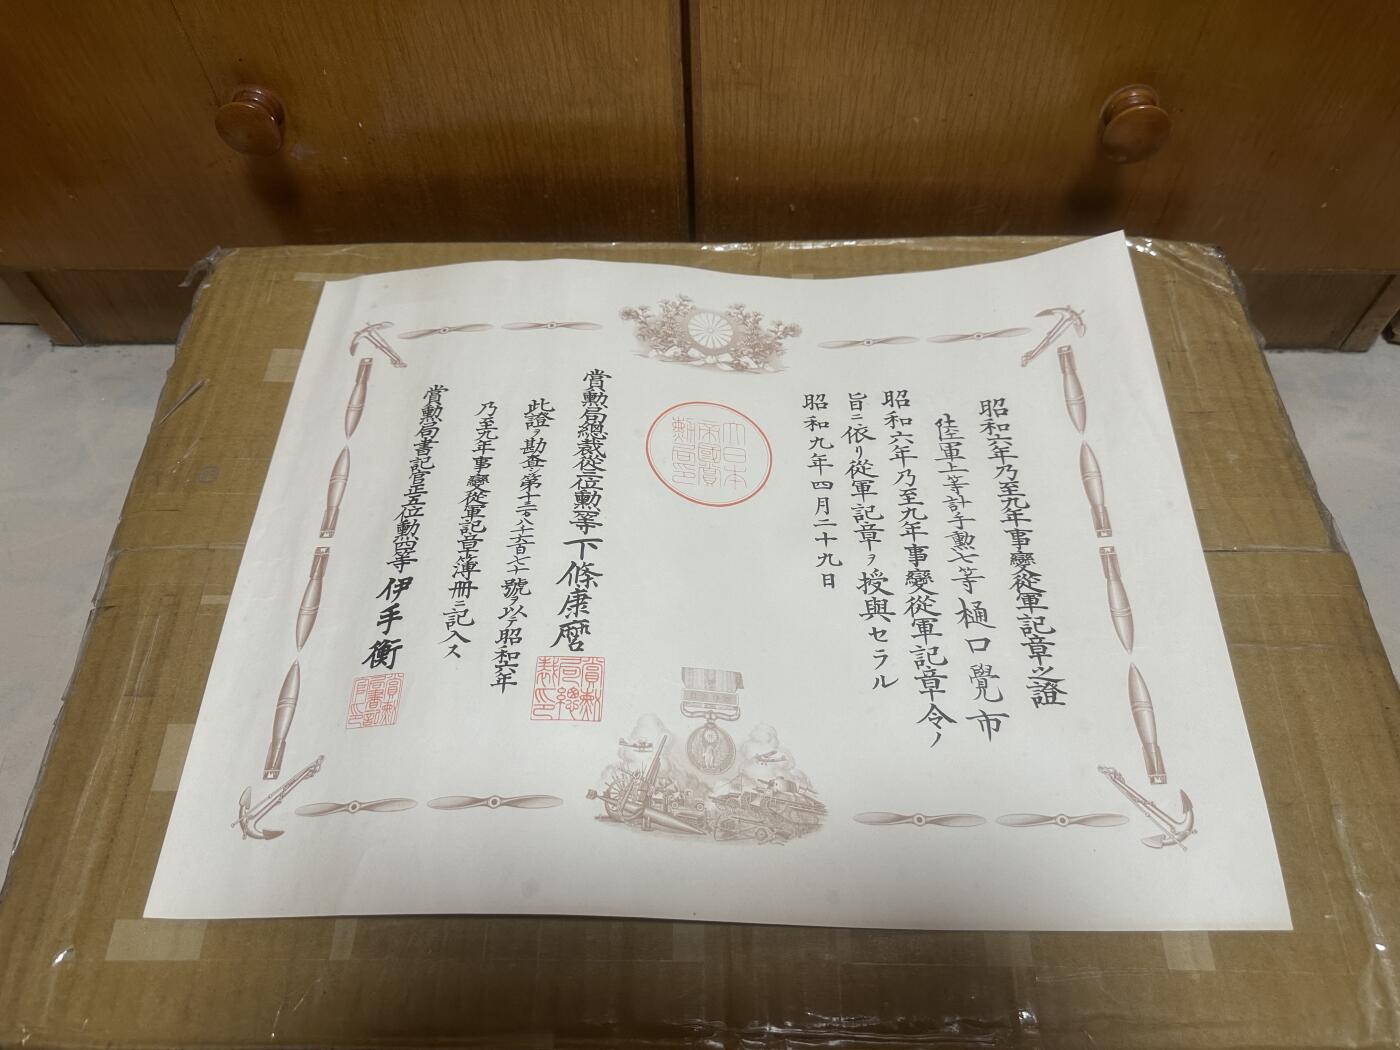 昭和六年乃至九年事變從軍記章之證
陸軍上等計手勲七等樋口覺市
昭和六年乃至九年事變從軍記章令ノ
旨ニ依リ從軍記章ヲ授與セラル
昭和九年四月二十九日
大日本
帝國賞
勲局印
賞勲局總裁從三位勲一等下條康麿
賞勲
局總
裁印
此證ヲ勘査シ第十三万八千六百七十號ヲ以テ昭和六年
乃至九年事變從軍記章簿冊ニ記入ス
賞勲局書記官正五位勲四等伊手衡
賞勲
局書記
官印